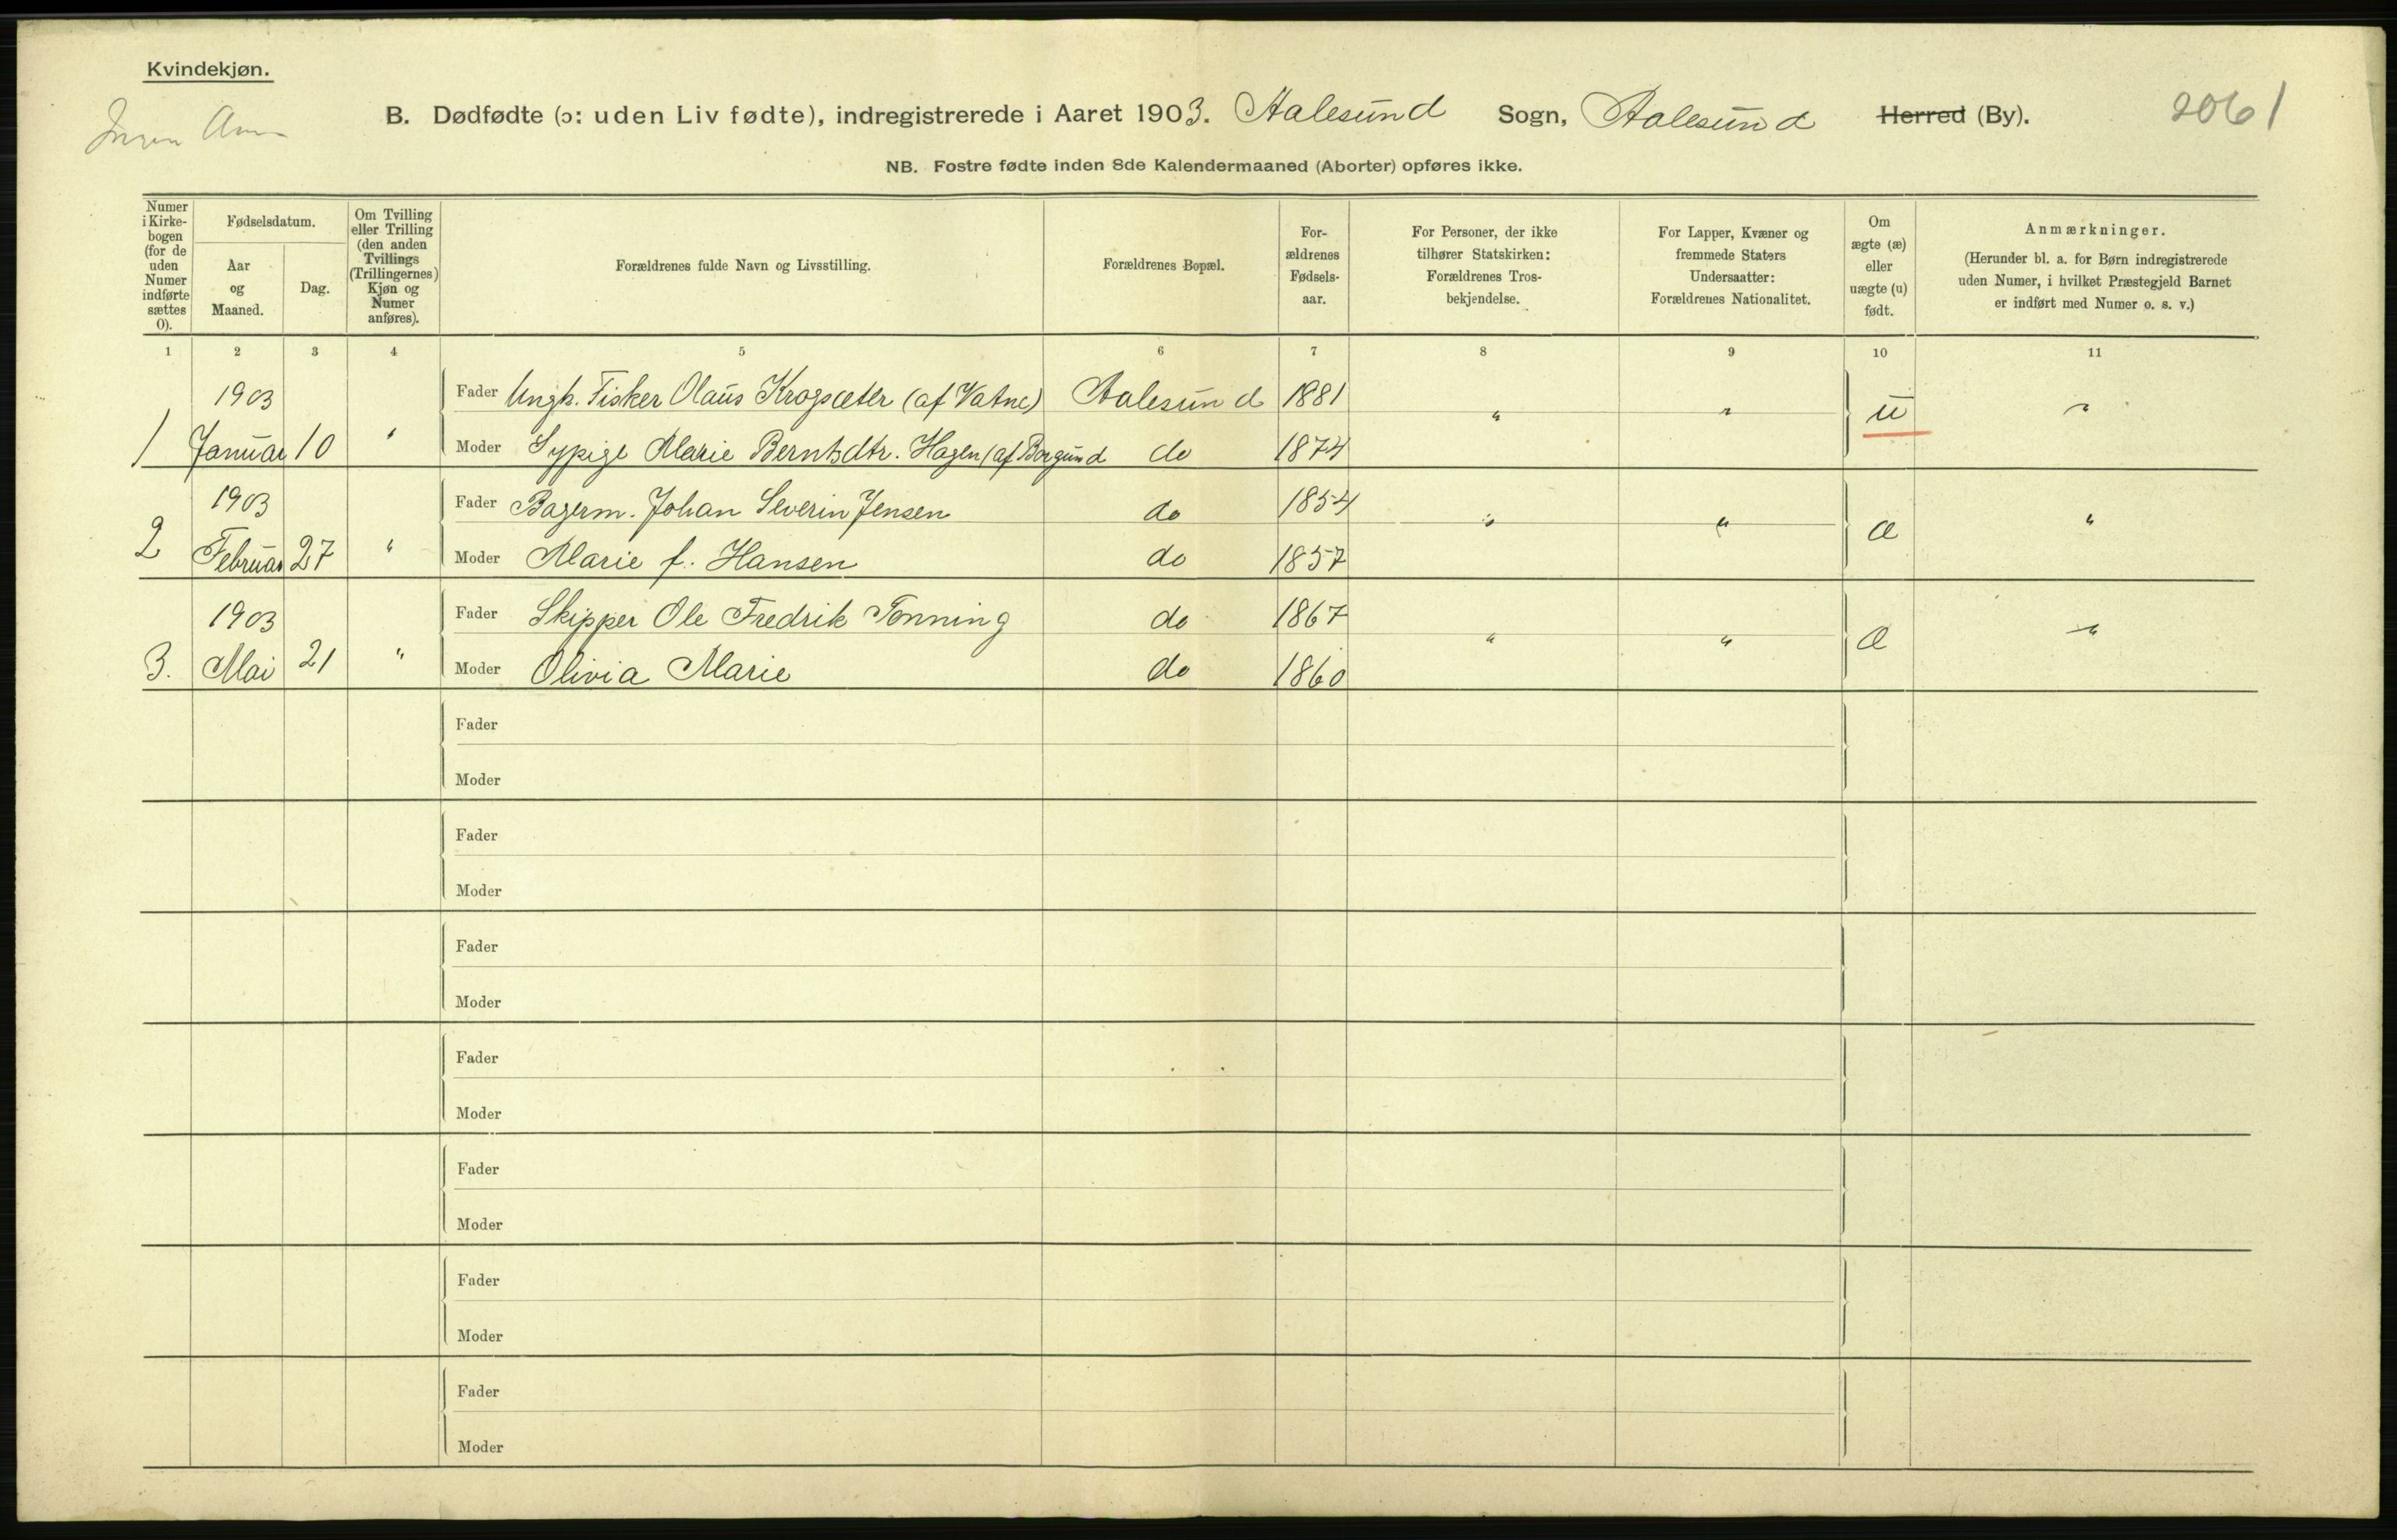 Kvindekjøn.
B. Dødfødte (ɔ: uden Liv fødte), indregistrerede i Aaret 1903. Aalesund Sogn, Aalesund Herred (By).
2061
NB. Fostre fødte inden 8de Kalendermaaned (Aborter) opføres ikke.
Numer i Kirke-bogen (for de uden Numer indførte sættes 0).
Fødselsdatum.
Aar og Maaned.
Dag.
Om Tvilling eller Trilling (den anden Tvillings (Trillingernes) Kjøn og Numer anføres).
Forældrenes fulde Navn og Livsstilling.
Forældrenes Bopæl.
For-ældrenes Fødsels-aar.
For Personer, der ikke tilhører Statskirken: Forældrenes Tros-bekjendelse.
For Lapper, Kvæner og fremmede Staters Undersaatter: Forældrenes Nationalitet.
Om ægte (æ) eller uægte (u) født.
Anmærkninger.
(Herunder bl. a. for Børn indregistrerede uden Numer, i hvilket Præstegjeld Barnet er indført med Numer o. s. v.)
1 2 3 4 5 6 7 8 9 10 11
1903 Fader Ungk. Fisker Olaus Krogsæter (af Vatne) Aalesund 1881 " " u "
1 Januar 10 " Moder Sypige Marie Berntsdtr. Hagen (af Borgund do 1874
1903 Fader Bagerm. Johan Severin Jensen do 1854 " " æ "
2 Februar 27 " Moder Marie f. Hansen do 1857
1903 Fader Skipper Ole Fredrik Tonning do 1867 " " æ "
3. Mai 21 " Moder Olivia Marie do 1860
Fader
Moder
Fader
Moder
Fader
Moder
Fader
Moder
Fader
Moder
Fader
Moder
Fader
Moder